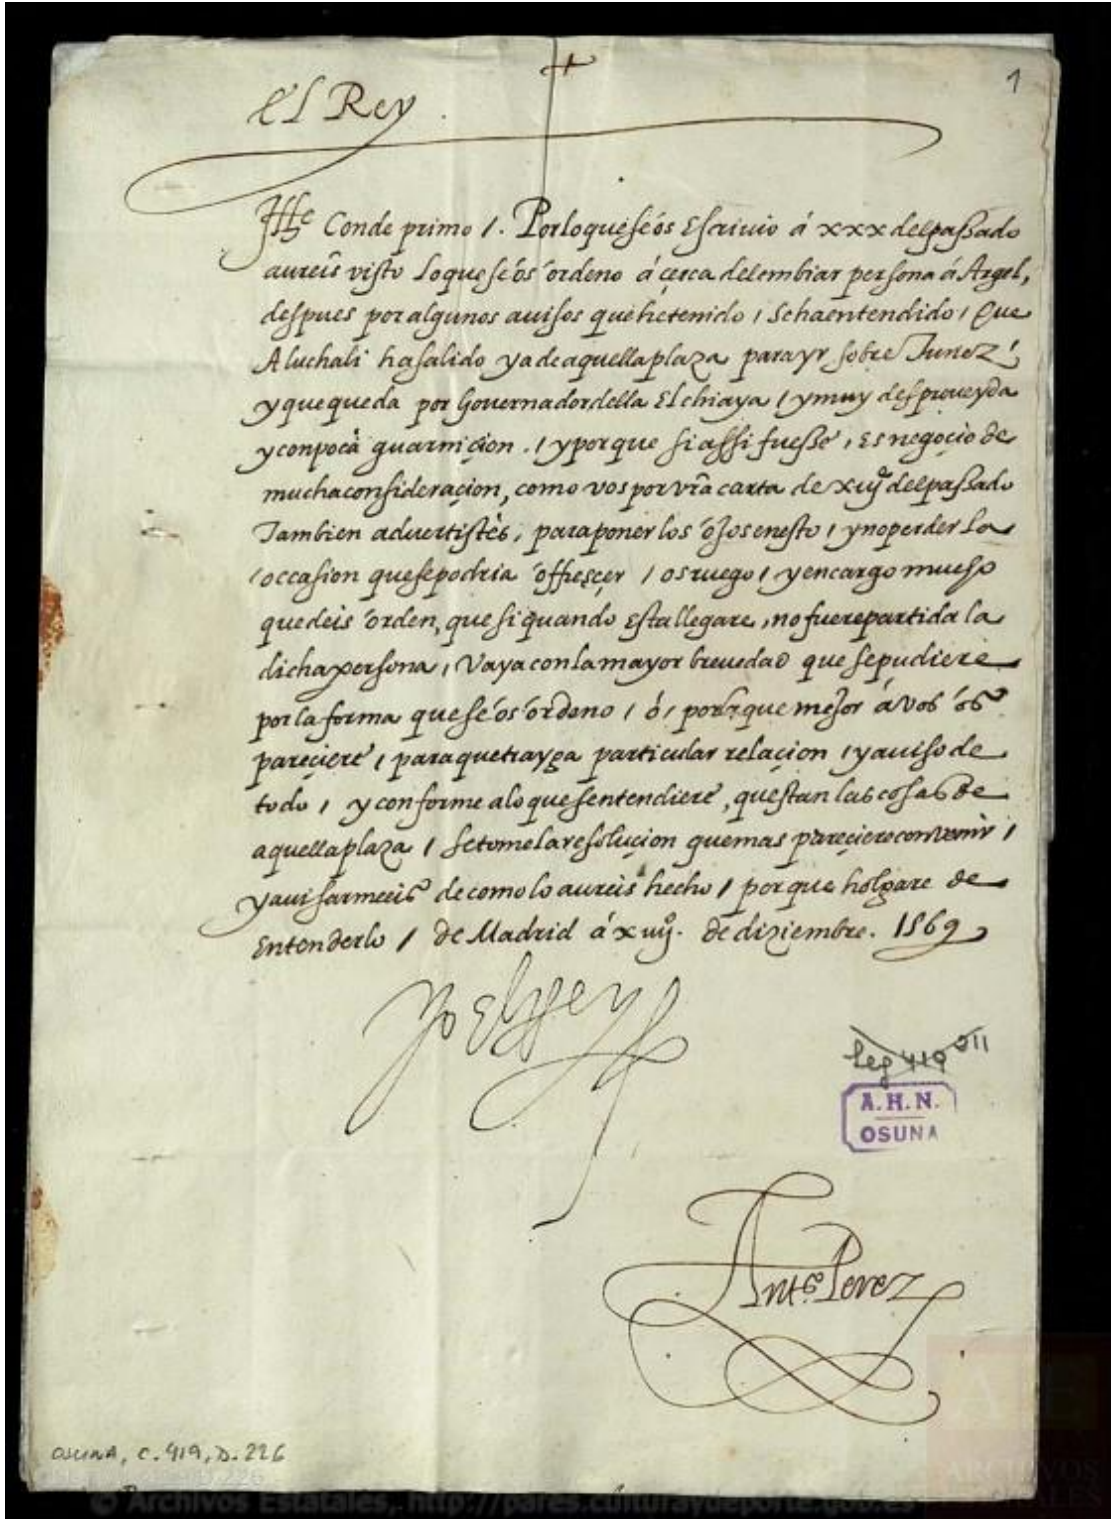 +
1
El Rey
Ill.e Conde primo /. Por lo que se ós Escriuio á xxx del passado
aureis visto lo que se ós órdeno á çerca del embiar persona á Argel,
despues por algunos auisos que he tenido / se ha entendido / Que
Aluchali ha salido ya de aquella plaza para yr sobre Tunez /
y que queda por Gouernador della El chiaya / y muy desproueyda
y con poca guarniçion . / y porque si assi fuesse , Es negoçio de
mucha consideraçion, como vos por vra carta de del passado
Tambien aduertistes, para poner los ójos en esto / y no perder la
occasion que se podria óffresçer / os ruego / y encargo mucho
que deis órden, que si quando Esta llegare , no fuere partida la
dicha persona , Vaya con la mayor breuedad que se pudiere
por la forma que se ós órdeno / ó / por la que mejor á vos ós
pareçiere / para que trayga particular relaçion / y auiso de
todo / y conforme a lo que se entendiere , questan las cosas de
aquella plaza / se tome la resoluçion que mas pareçiere convenir /
y auisarmeeis de como lo aureis hecho / porque holgare de
Entenderlo / de Madrid á xiiij. de diziembre. 1569
Yo El Rey
leg 419 011
A.H.N.
OSUNA
Anto Perez
OSUNA, C. 419, D. 226
© Archivos Estatales, http://pares.culturaydeporte.gob.es
ARCHIVOS